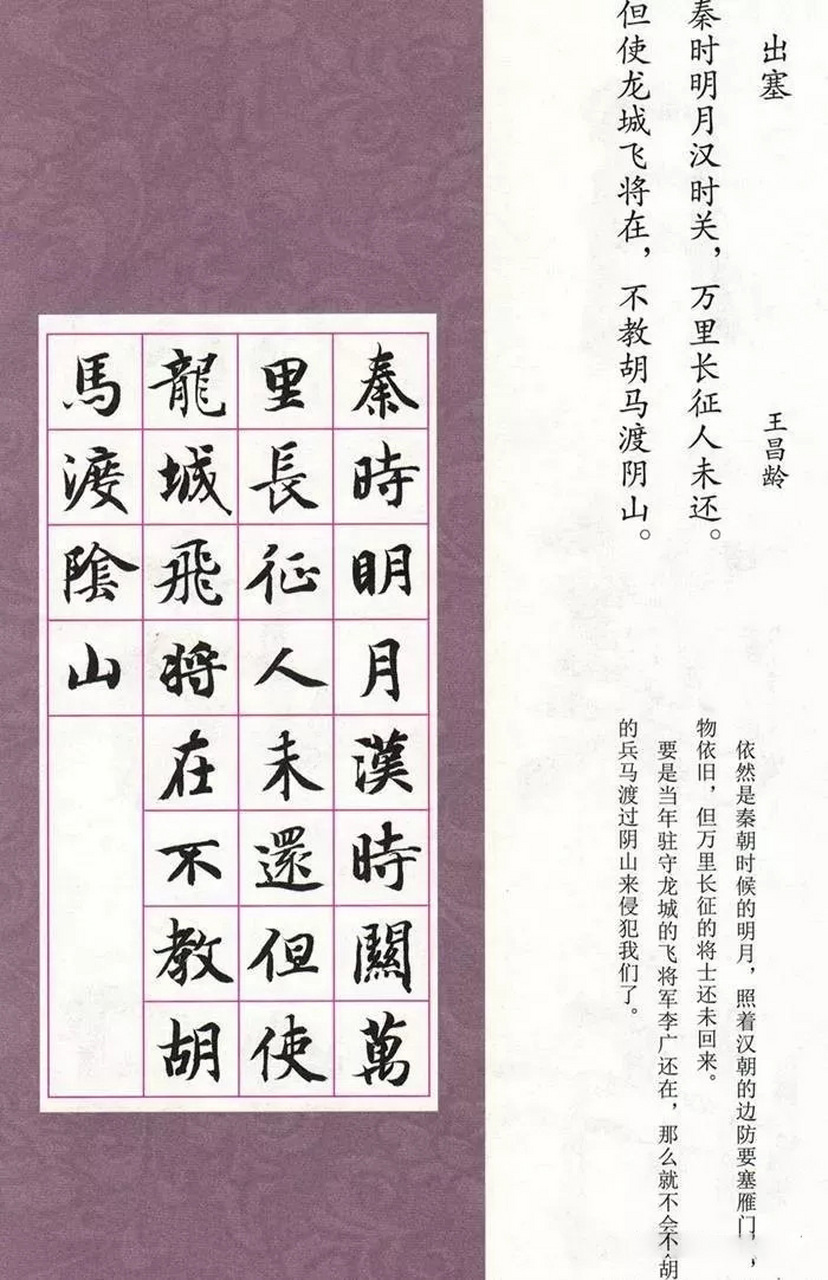 出塞
王昌龄
秦时明月汉时关，万里长征人未还。
但使龙城飞将在，不教胡马渡阴山。
依然是秦朝时候的明月，照着汉朝的边防要塞雁门，
物依旧，但万里长征的将士还未回来。
要是当年驻守龙城的飞将军李广还在，那么就不会不胡
的兵马渡过阴山来侵犯我们了。
秦時明月漢時關萬
里長征人未還但使
龍城飛將在不教胡
馬渡陰山